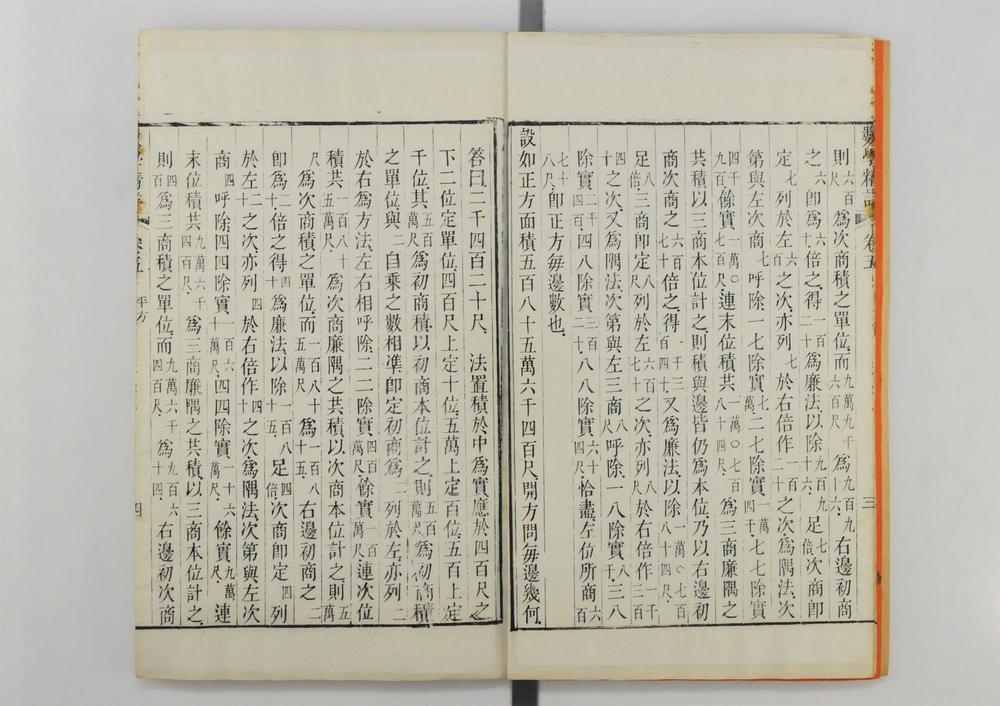 數學精詳 卷五 三
則六百尺爲次商積之單位而九萬九千九百九六百尺爲十六右邊初商
之六即爲六十倍之得一百二十爲廉法以除九百九十六足七倍次商即
定七列於左六百之次亦列七於右倍作一百二十之次爲隅法次
第與左次商七呼除一七除實七萬二七除實一萬四千七七除實
四千九百餘實一萬〇七百連末位積共一萬〇七百八十四尺爲三商廉隅之
共積以三商本位計之則積與邊皆仍爲本位乃以右邊初
商次商之六百七十倍之得一千三百四十又爲廉法以除一萬〇七百八十四尺
足八倍三商即定八尺列於左六百七十之次亦列八尺於右倍作一千三百
四十之次又爲隅法次第與左三商八尺呼除一八除實八千三八
除實二千四百四八除實三百二十八八除實六十四尺恰盡左位所商六百
七十八尺即正方每邊數也
設如正方面積五百八十五萬六千四百尺開方問每邊幾何
答曰二千四百二十尺 法置積於中爲實應於四百尺之
下二位定單位四百尺上定十位五萬上定百位五百上定
千位其五百萬尺爲初商積以初商本位計之則五百萬尺爲初商積
之單位與二自乘之數相準即定初商爲二列於左亦列二
於右爲方法左右相呼除二二除實四百萬尺餘實一百萬尺連次位
積共一百八十五萬尺爲次商廉隅之共積以次商本位計之則五萬
尺爲次商積之單位而一百八十五萬尺爲一百八十五右邊初商之二
即爲二十倍之得四十爲廉法以除一百八十五足四倍次商即定四列
於左二十之次亦列四於右倍作四十之次爲隅法次第與左次
商四呼除四四除實一百六十萬尺四四除實一十六萬尺餘實九萬尺連
末位積共九萬六千四百尺爲三商廉隅之共積以三商本位計之
則四百尺爲三商積之單位而九萬六千四百尺爲九百六十四右邊初次商
平方 四